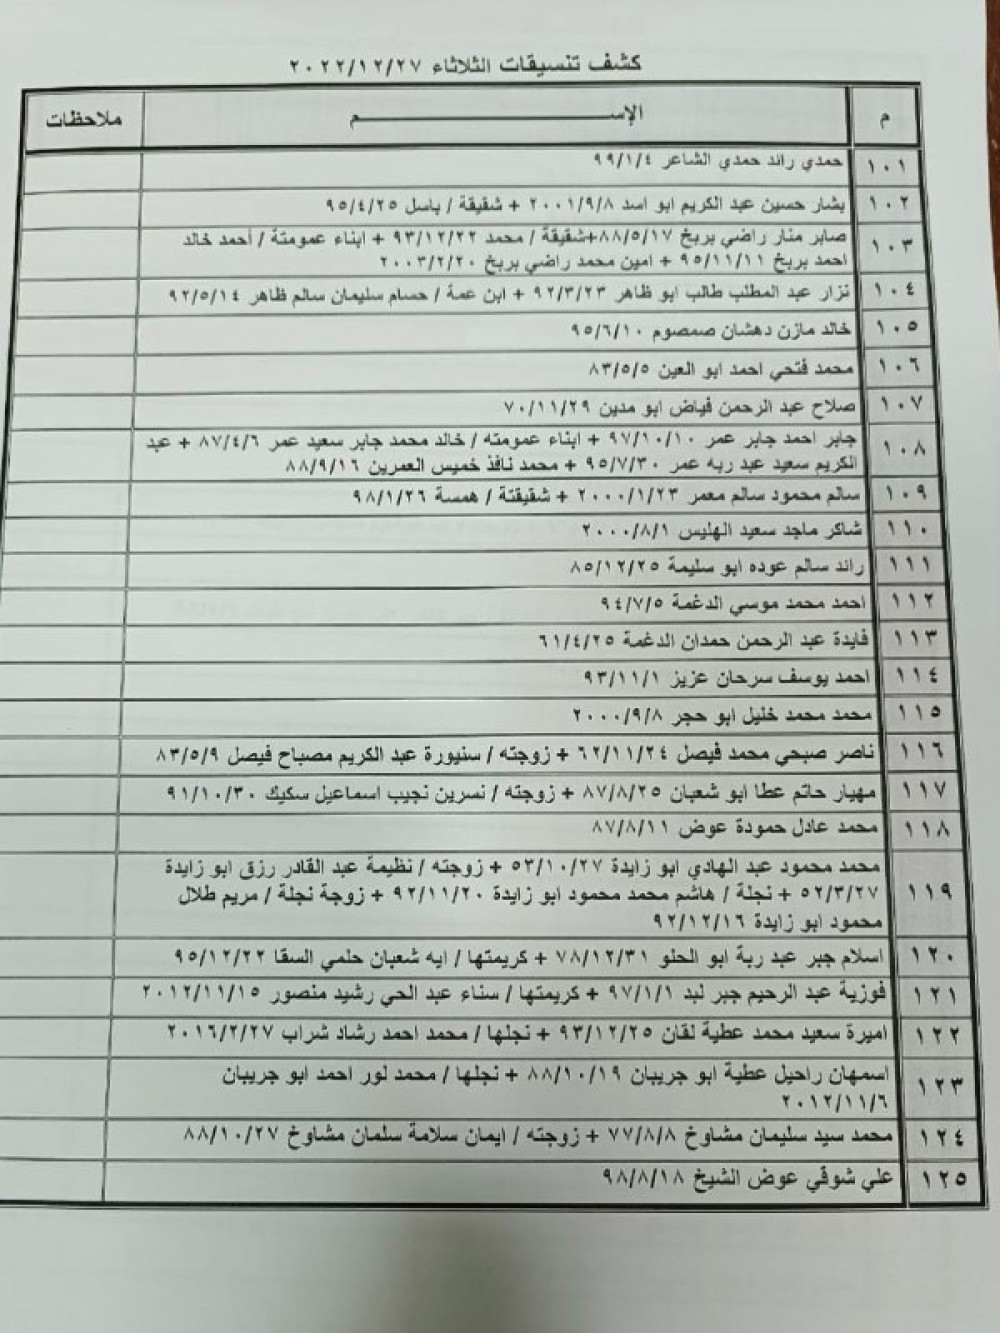 كشف تنسيقات الثلاثاء ٢٠٢٢/١٢/٢٧
م الإســـــم ملاحظات
١٠١ حمدي رائد حمدي الشاعر ٩٩/١/٤
١٠٢ بشار حسين عبد الكريم ابو اسد ٢٠٠١/٩/٨ + شقيقة / باسل ٩٥/٤/٢٥
١٠٣ صابر منار راضي بربخ ٨٨/٥/١٧+شقيقة / محمد ٩٣/١٢/٢٢ + ابناء عمومتة / أحمد خالد
احمد بربخ ٩٥/١١/١١ + امين محمد راضي بربخ ٢٠٠٣/٢/٢٠
١٠٤ نزار عبد المطلب طالب ابو ظاهر ٩٢/٣/٢٣ + ابن عمة / حسام سليمان سالم ظاهر ٩٢/٥/١٤
١٠٥ خالد مازن دهشان صمصوم ٩٥/٦/١٠
١٠٦ محمد فتحي احمد ابو العين ٨٣/٥/٥
١٠٧ صلاح عبد الرحمن فياض ابو مدين ٧٠/١١/٢٩
١٠٨ جابر احمد جابر عمر ٩٧/١٠/١٠ + ابناء عمومته / خالد محمد جابر سعيد عمر ٨٧/٤/٦ + عبد
الكريم سعيد عبد ربه عمر ٩٥/٧/٣٠ + محمد نافذ خميس العمرين ٨٨/٩/١٦
١٠٩ سالم محمود سالم معمر ٢٠٠٠/١/٢٣ + شقيقتة / همسة ٩٨/١/٢٦
١١٠ شاكر ماجد سعيد الهليس ٢٠٠٠/٨/١
١١١ رائد سالم عوده ابو سليمة ٨٥/١٢/٢٥
١١٢ احمد محمد موسي الدغمة ٩٤/٧/٥
١١٣ فايدة عبد الرحمن حمدان الدغمة ٦١/٤/٢٥
١١٤ احمد يوسف سرحان عزيز ٩٣/١١/١
١١٥ محمد محمد خليل ابو حجر ٢٠٠٠/٩/٨
١١٦ ناصر صبحي محمد فيصل ٦٢/١١/٢٤ + زوجته / سنيورة عبد الكريم مصباح فيصل ٨٣/٥/٩
١١٧ مهيار حاتم عطا ابو شعبان ٨٧/٨/٢٥ + زوجته / نسرين نجيب اسماعيل سكيك ٩١/١٠/٣٠
١١٨ محمد عادل حمودة عوض ٨٧/٨/١١
١١٩ محمد محمود عبد الهادي ابو زايدة ٥٣/١٠/٢٧ + زوجته / نظيمة عبد القادر رزق ابو زايدة
٥٢/٣/٢٧ + نجلة / هاشم محمد محمود ابو زايدة ٩٢/١١/٢٠ + زوجة نجلة / مريم طلال
محمود ابو زايدة ٩٢/١٢/١٦
١٢٠ اسلام جبر عبد ربة ابو الحلو ٧٨/١٢/٣١ + كريمتها / ايه شعبان حلمي السقا ٩٥/١٢/٢٢
١٢١ فوزية عبد الرحيم جبر لبد ٩٧/١/١ + كريمتها / سناء عبد الحي رشيد منصور ٢٠١٢/١١/١٥
١٢٢ اميرة سعيد محمد عطية لقان ٩٣/١٢/٢٥ + نجلها / محمد احمد رشاد شراب ٢٠١٦/٢/٢٧
١٢٣ اسمهان راحيل عطية ابو جريبان ٨٨/١٠/١٩ + نجلها / محمد لور احمد ابو جريبان
٢٠١٢/١١/٦
١٢٤ محمد سيد سليمان مشاوخ ٧٧/٨/٨ + زوجته / ايمان سلامة سلمان مشاوخ ٨٨/١٠/٢٧
١٢٥ علي شوقي عوض الشيخ ٩٨/٨/١٨